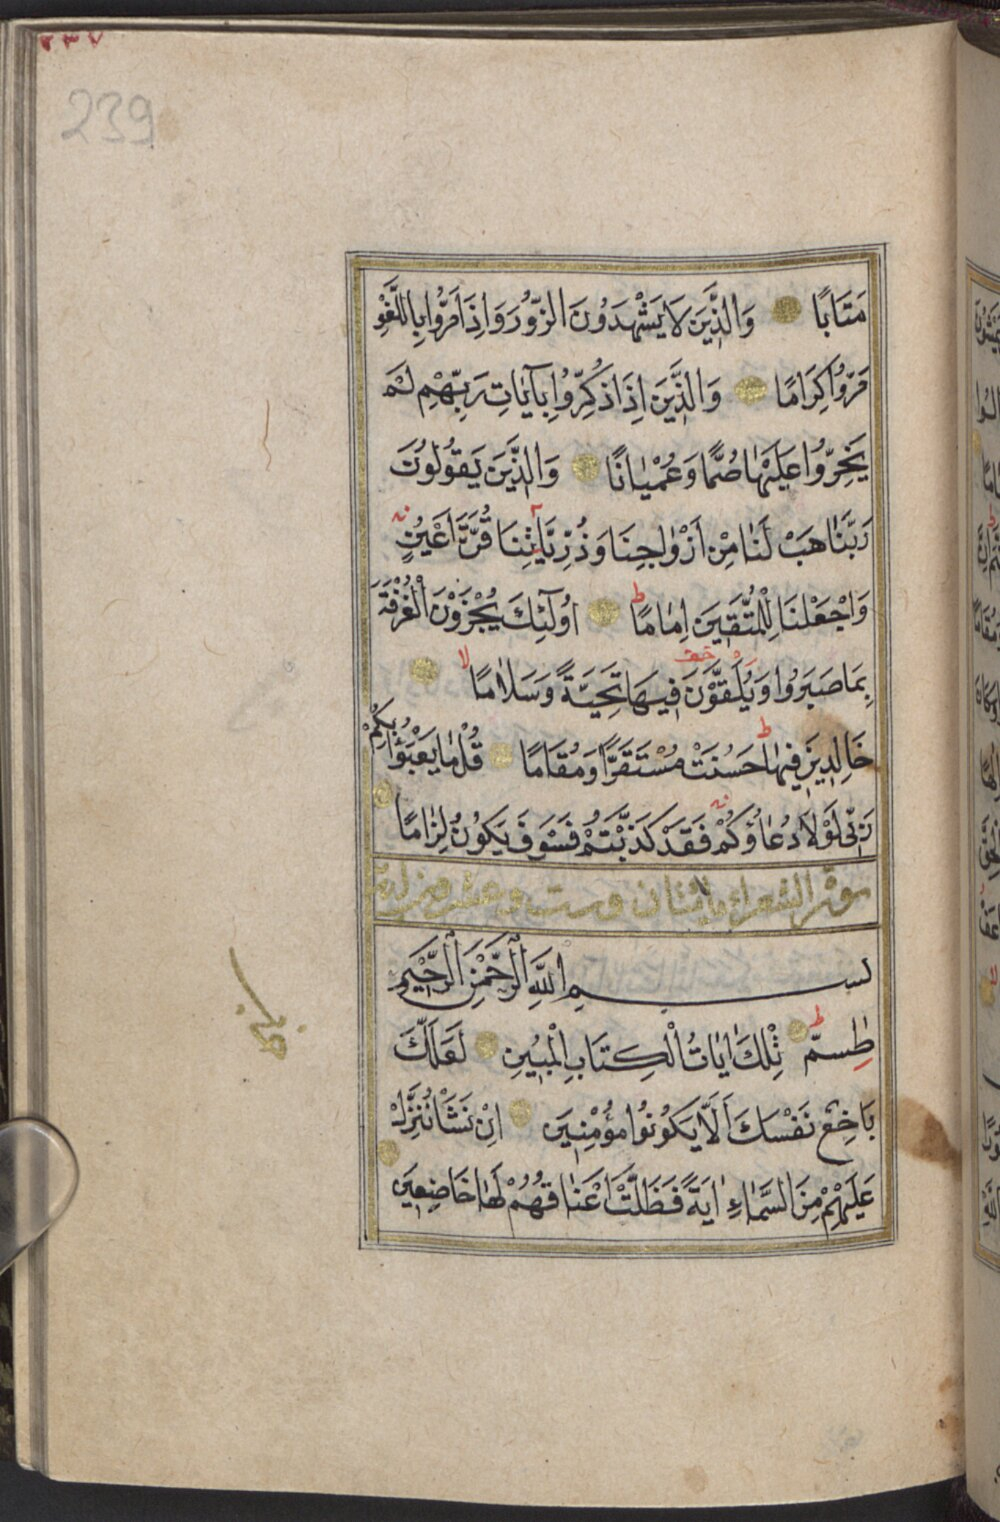 ٢٣٧
239
مَتَابًا وَالَّذِينَ لَا يَشْهَدُونَ الزُّورَ وَاِذَا مَرُّوا بِاللَّغْوِ
مَرُّوا كِرَامًا وَالَّذِينَ اِذَا ذُكِّرُوا بِآيَاتِ رَبِّهِمْ لَمْ
يَخِرُّوا عَلَيْهَا صُمًّا وَعُمْيَانًا وَالَّذِينَ يَقُولُونَ
رَبَّنَا هَبْ لَنَا مِنْ اَزْوَاجِنَا وَذُرِّيَّاتِنَا قُرَّةَ اَعْيُنٍ
وَاجْعَلْنَا لِلْمُتَّقِينَ اِمَامًا ط اُولٰئِكَ يُجْزَوْنَ الْغُرْفَةَ
بِمَا صَبَرُوا وَيُلَقَّوْنَ فِيهَا تَحِيَّةً وَسَلَامًا لا
خَالِدِينَ فِيهَا ط حَسُنَتْ مُسْتَقَرًّا وَمُقَامًا قُلْ مَا يَعْبَؤُا بِكُمْ
رَبِّى لَوْلَا دُعَاؤُكُمْ فَقَدْ كَذَّبْتُمْ فَسَوْفَ يَكُونُ لِزَامًا
سورة الشعراء مايتان وست وعشرون اية
بِسْمِ اللَّهِ الرَّحْمٰنِ الرَّحِيمِ
طٰسمّ ط تِلْكَ اٰيَاتُ الْكِتَابِ الْمُبِينِ لَعَلَّكَ
بَاخِعٌ نَفْسَكَ اَلَّا يَكُونُوا مُؤْمِنِينَ اِنْ نَشَأْ نُنَزِّلْ
عَلَيْهِمْ مِنَ السَّمَاءِ اٰيَةً فَظَلَّتْ اَعْنَاقُهُمْ لَهَا خَاضِعِينَ